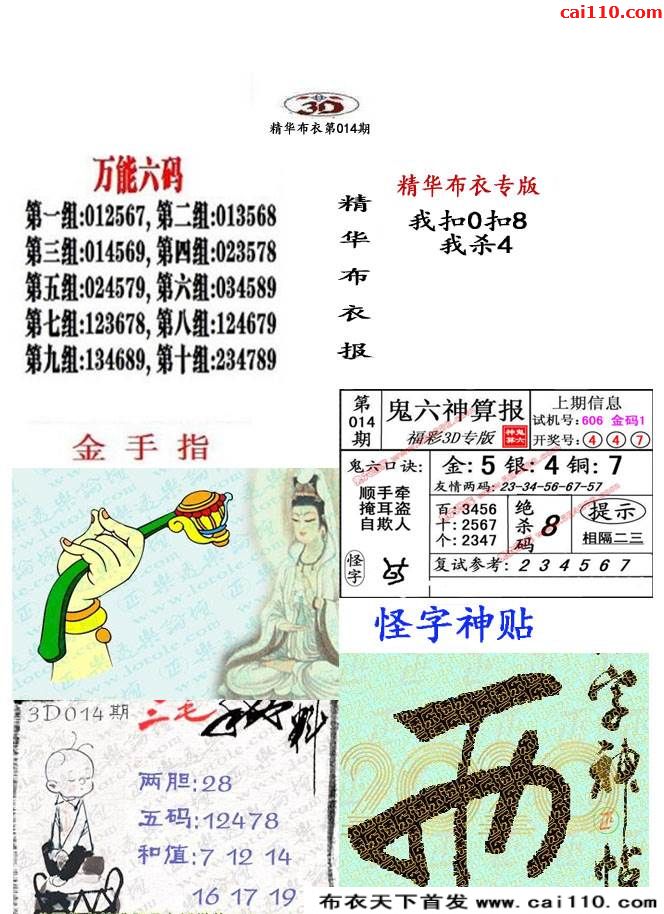 cai110.com
3D
精华布衣第014期
万能六码
第一组:012567,第二组:013568
第三组:014569,第四组:023578
第五组:024579,第六组:034589
第七组:123678,第八组:124679
第九组:134689,第十组:234789
精华布衣报
精华布衣专版
我扣0扣8
我杀4
金手指
第014期
鬼六神算报
福彩3D专版
神鬼算六
上期信息
试机号:606 金码1
开奖号:④④⑦
鬼六口诀:
顺手牵
掩耳盗
自欺人
金:5 银:4 铜:7
友情两码:23-34-56-67-57
百:3456
十:2567
个:2347
绝杀码
8
提示
相隔二三
怪字
复试参考:234567
怪字神贴
字神帖
2000
3D014期
三毛
料
两胆:28
五码:12478
和值:7 12 14
16 17 19
布衣天下首发 www.cai110.com